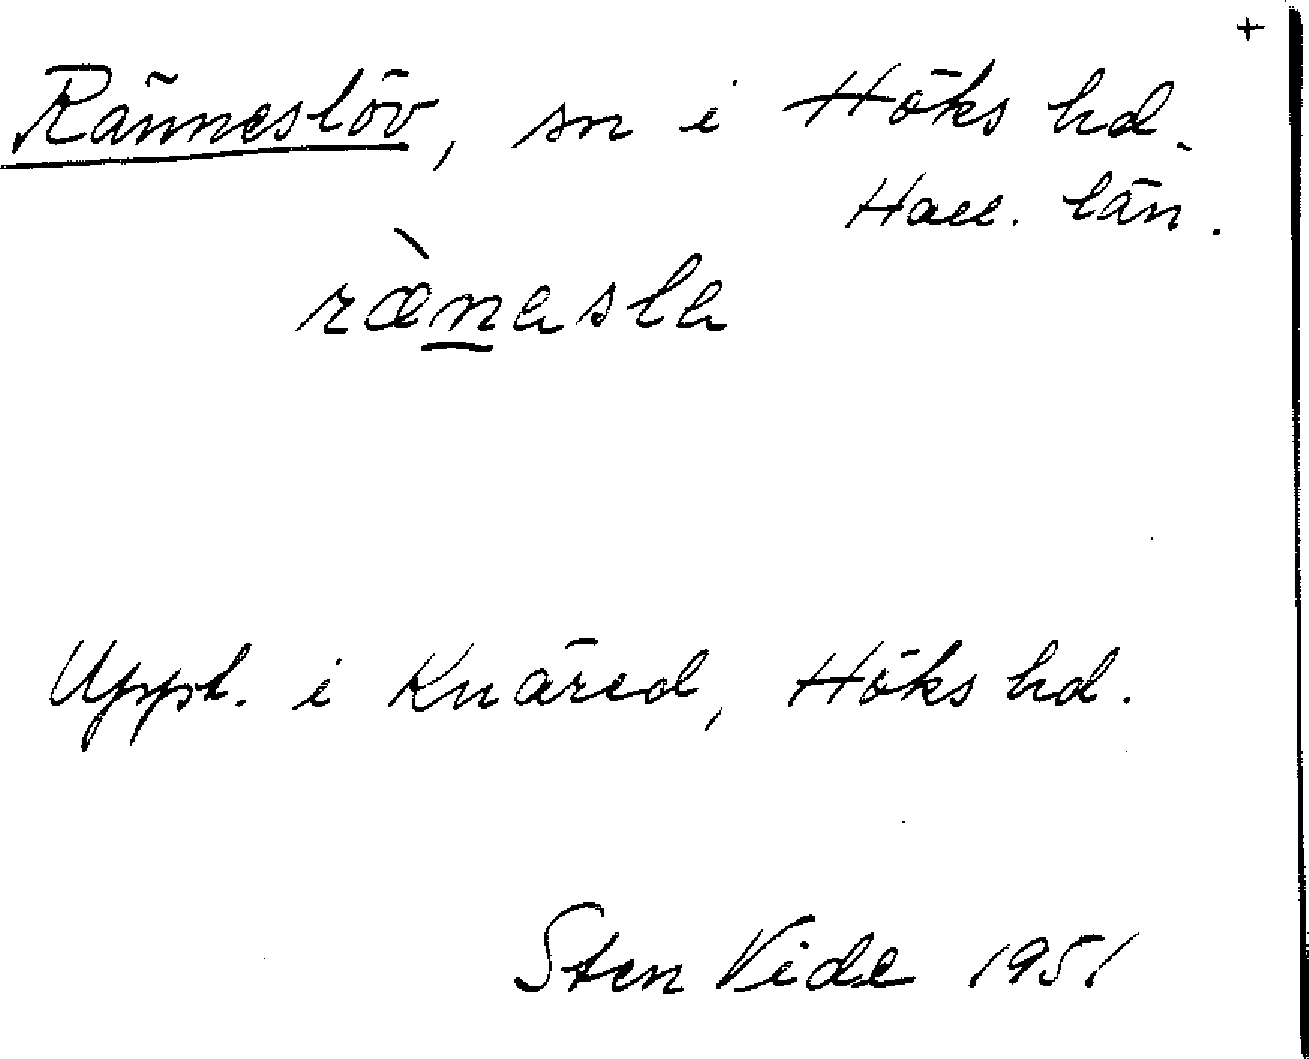 +
Ränneslöv, sn i Höks hd.
Hall. län.
ræ̀n̲asla
Uppt. i Knäred, Höks hd.
Sten Vide 1951